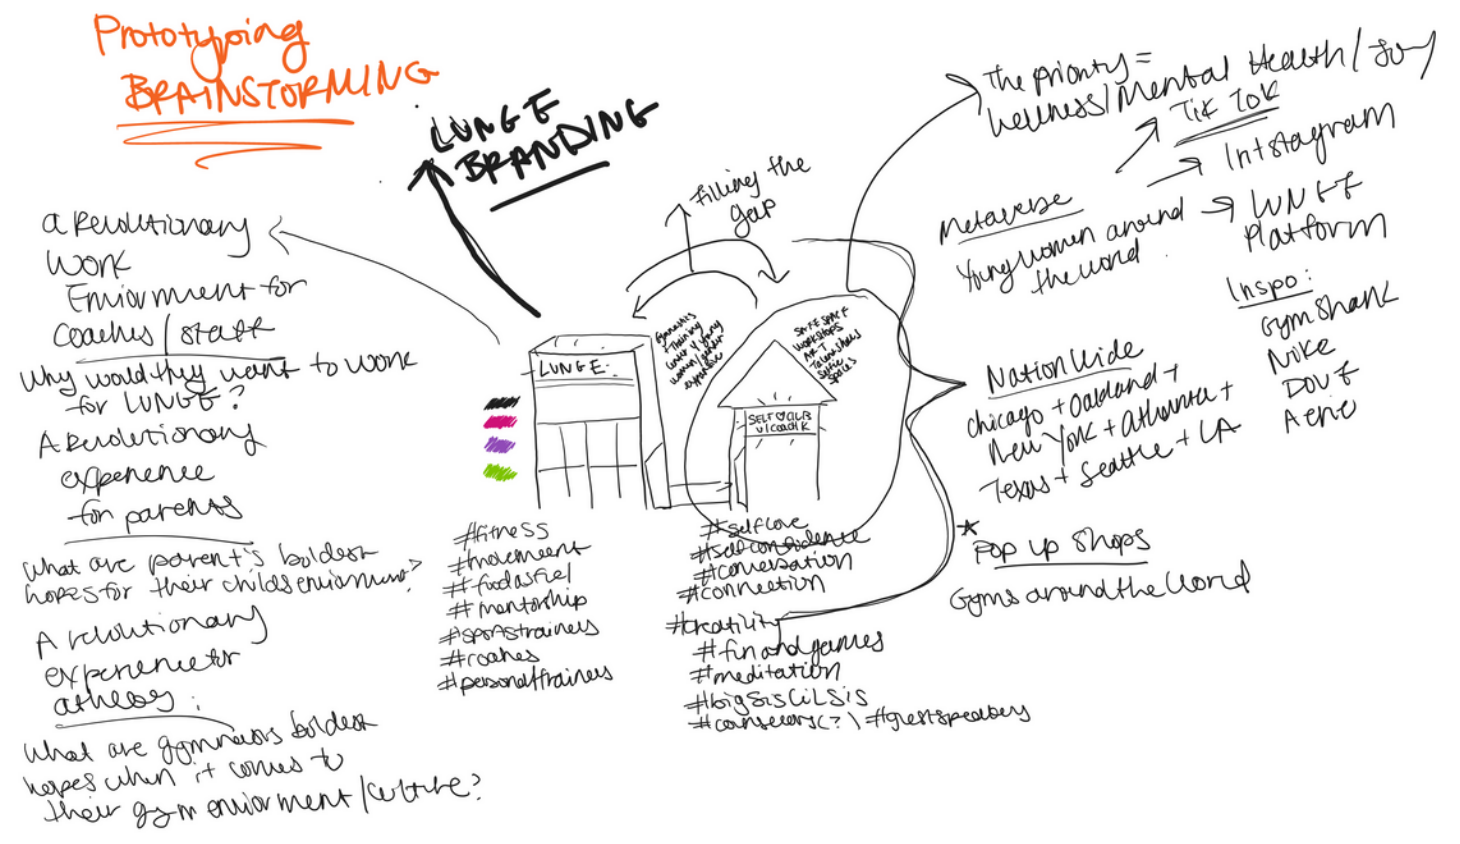 Prototyping
BRAINSTORMING
LUNGE
BRANDING
a Revolutionary
Work
Enviorment for
Coaches / staff
Why would they want to work
for LUNGE?
A Revolutionary
experience
for parents
What are parent's boldest
hopes for their childs enviornment?
A revolutionary
experience for
What are gymnasts boldest
hopes when it comes to
their gym enviorment / culture?
filling the
gap
LUNGE
Gymnastics
Training
women/gender
expansive
SAFE SPACE
WORKSHOPS
ART
Talent shows
spaces
SELF ♡ CLUB
w/ COACH K
#fitness
#movement
#foodasfuel
#mentorship
#sportstrainers
#coaches
#personaltrainers
#selflove
#selfconfidence
#conversation
#connection
#creativity
#funandgames
#meditation
#bigsisLiLSis
#counselors(?) #guestspeakers
The Priority =
Wellness/Mental Health/Joy
Metaverse
Young women around
the world
Tik Tok
Intstagram
LUNGE
Platform
Inspo:
Gymshark
Nike
DOVE
Aerie
Nation Wide
Chicago + Oakland +
New York + Atlanta +
Texas + Seattle + LA
Pop up shops
Gyms around the World